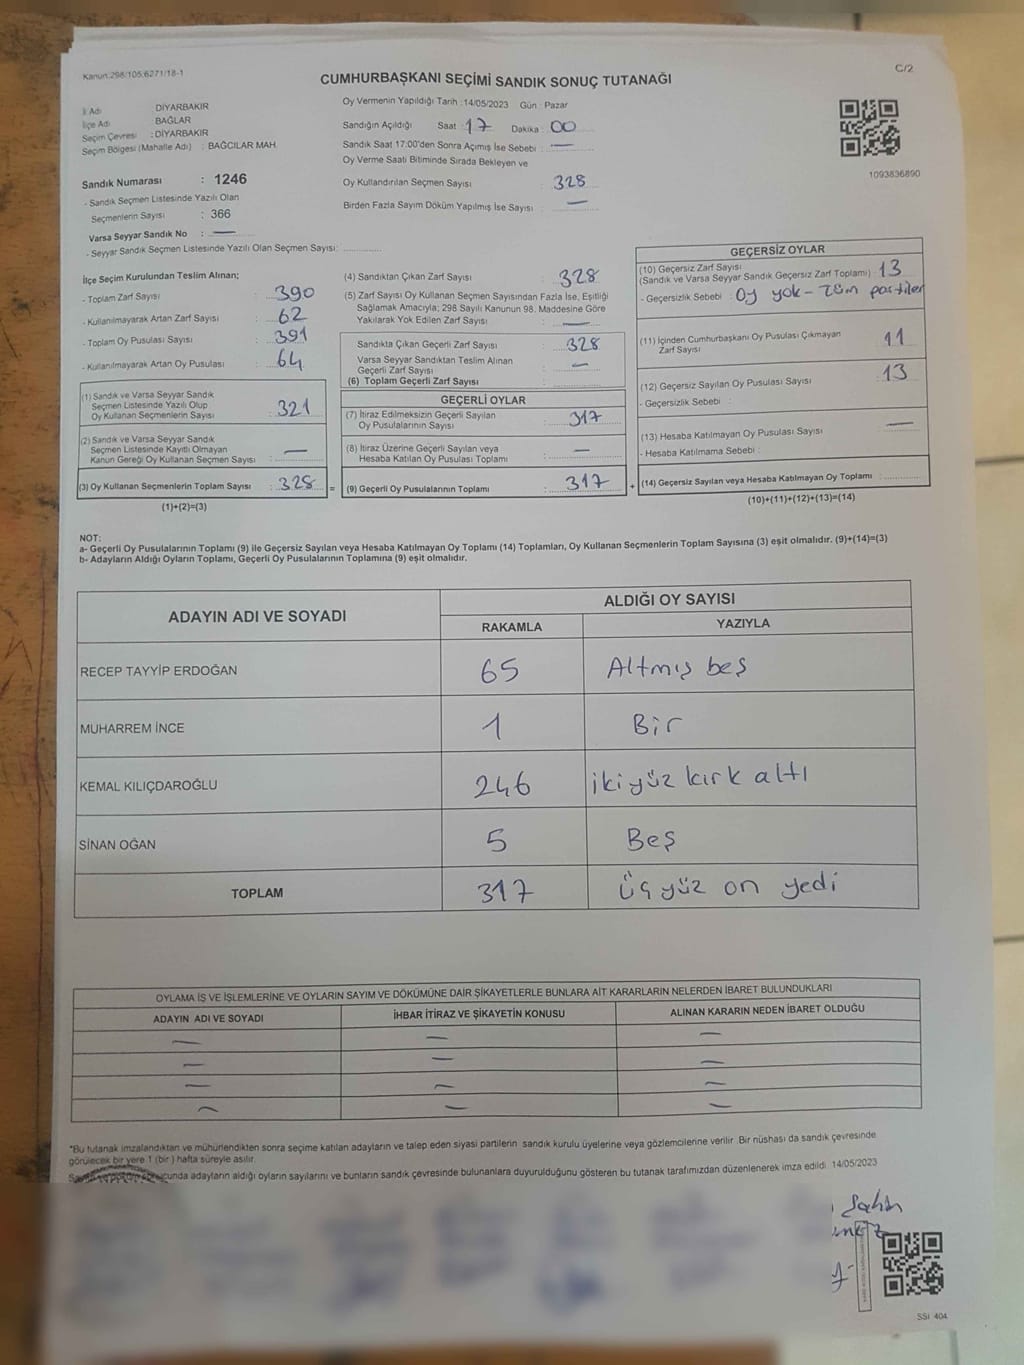 Kanun:298/105;6271/18-1
C/2
CUMHURBAŞKANI SEÇİMİ SANDIK SONUÇ TUTANAĞI
İl Adı DİYARBAKIR
İlçe Adı BAĞLAR
Seçim Çevresi : DİYARBAKIR
Seçim Bölgesi (Mahalle Adı) : BAĞCILAR MAH.
Sandık Numarası : 1246
- Sandık Seçmen Listesinde Yazılı Olan
Seçmenlerin Sayısı : 366
Varsa Seyyar Sandık No : —
- Seyyar Sandık Seçmen Listesinde Yazılı Olan Seçmen Sayısı:
Oy Vermenin Yapıldığı Tarih :14/05/2023 Gün : Pazar
Sandığın Açıldığı Saat :17 Dakika :00
Sandık Saat 17:00'den Sonra Açımış İse Sebebi : —
Oy Verme Saati Bitiminde Sırada Bekleyen ve
Oy Kullandırılan Seçmen Sayısı : 328
Birden Fazla Sayım Döküm Yapılmış İse Sayısı : —
1093836890
İlçe Seçim Kurulundan Teslim Alınan;
- Toplam Zarf Sayısı : 390
- Kullanılmayarak Artan Zarf Sayısı : 62
- Toplam Oy Pusulası Sayısı : 391
- Kullanılmayarak Artan Oy Pusulası : 64
(1) Sandık ve Varsa Seyyar Sandık
Seçmen Listesinde Yazılı Olup
Oy Kullanan Seçmenlerin Sayısı : 321
(2) Sandık ve Varsa Seyyar Sandık
Seçmen Listesinde Kayıtlı Olmayan
Kanun Gereği Oy Kullanan Seçmen Sayısı : —
(3) Oy Kullanan Seçmenlerin Toplam Sayısı : 328 =
(1)+(2)=(3)
(4) Sandıktan Çıkan Zarf Sayısı : 328
(5) Zarf Sayısı Oy Kullanan Seçmen Sayısından Fazla İse, Eşitliği
Sağlamak Amacıyla; 298 Sayılı Kanunun 98. Maddesine Göre
Yakılarak Yok Edilen Zarf Sayısı : —
Sandıkta Çıkan Geçerli Zarf Sayısı : 328
Varsa Seyyar Sandıktan Teslim Alınan
Geçerli Zarf Sayısı : —
(6) Toplam Geçerli Zarf Sayısı :
GEÇERLİ OYLAR
(7) İtiraz Edilmeksizin Geçerli Sayılan
Oy Pusulalarının Sayısı : 317
(8) İtiraz Üzerine Geçerli Sayılan veya
Hesaba Katılan Oy Pusulası Toplamı : —
(9) Geçerli Oy Pusulalarının Toplamı : 317 +
GEÇERSİZ OYLAR
(10) Geçersiz Zarf Sayısı
(Sandık ve Varsa Seyyar Sandık Geçersiz Zarf Toplamı) : 13
- Geçersizlik Sebebi : Oy yok - Tüm partiler
(11) İçinden Cumhurbaşkanı Oy Pusulası Çıkmayan
Zarf Sayısı : 11
(12) Geçersiz Sayılan Oy Pusulası Sayısı : 13
- Geçersizlik Sebebi :
(13) Hesaba Katılmayan Oy Pusulası Sayısı : —
- Hesaba Katılmama Sebebi :
(14) Geçersiz Sayılan veya Hesaba Katılmayan Oy Toplamı :
(10)+(11)+(12)+(13)=(14)
NOT:
a- Geçerli Oy Pusulalarının Toplamı (9) ile Geçersiz Sayılan veya Hesaba Katılmayan Oy Toplamı (14) Toplamları, Oy Kullanan Seçmenlerin Toplam Sayısına (3) eşit olmalıdır. (9)+(14)=(3)
b- Adayların Aldığı Oyların Toplamı, Geçerli Oy Pusulalarının Toplamına (9) eşit olmalıdır.
ADAYIN ADI VE SOYADI ALDIĞI OY SAYISI
RAKAMLA YAZIYLA
RECEP TAYYİP ERDOĞAN 65 Altmış beş
MUHARREM İNCE 1 Bir
KEMAL KILIÇDAROĞLU 246 ikiyüz kırk altı
SİNAN OĞAN 5 Beş
TOPLAM 317 üçyüz on yedi
OYLAMA İŞ VE İŞLEMLERİNE VE OYLARIN SAYIM VE DÖKÜMÜNE DAİR ŞİKAYETLERLE BUNLARA AİT KARARLARIN NELERDEN İBARET BULUNDUKLARI
ADAYIN ADI VE SOYADI İHBAR İTİRAZ VE ŞİKAYETİN KONUSU ALINAN KARARIN NEDEN İBARET OLDUĞU
— — —
— — —
— — —
— — —
*Bu tutanak imzalandıktan ve mühürlendikten sonra seçime katılan adayların ve talep eden siyasi partilerin sandık kurulu üyelerine veya gözlemcilerine verilir. Bir nüshası da sandık çevresinde
görülecek bir yere 1 (bir) hafta süreyle asılır.
sonucunda adayların aldığı oyların sayılarını ve bunların sandık çevresinde bulunanlara duyurulduğunu gösteren bu tutanak tarafımızdan düzenlenerek imza edildi. 14/05/2023
Şahin
SSİ 404